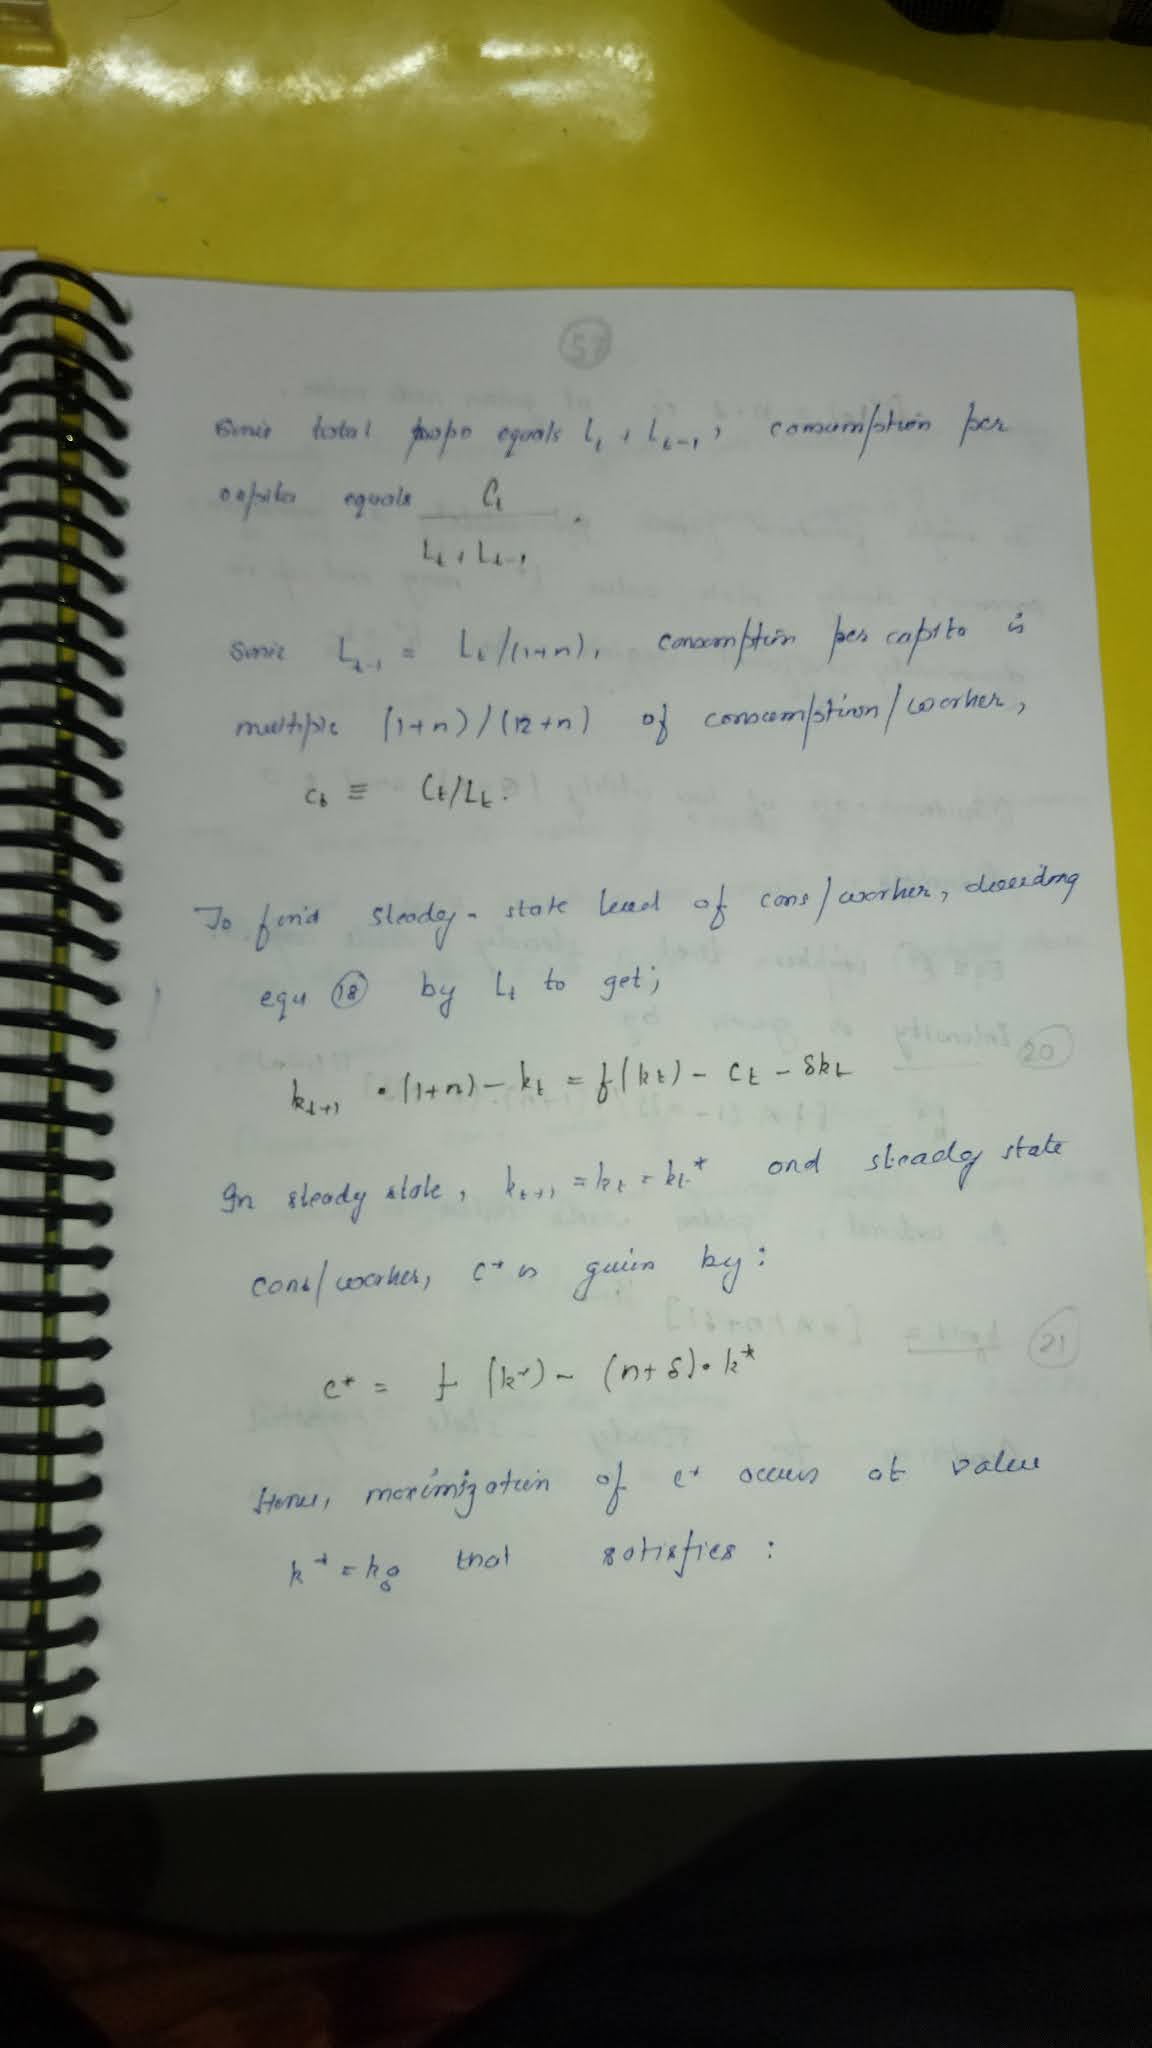 57
Since total popn equals Lt + Lt-1, consumption per
capita equals Ct / (Lt + Lt-1).
Since Lt-1 = Lt/(1+n), consumption per capita is
multiple (1+n)/(12+n) of consumption/worker,
ct ≡ Ct/Lt.
To find steady-state level of cons/worker, dividing
equ (18) by Lt to get;
kt+1 • (1+n) - kt = f(kt) - ct - δkt
In steady state, kt+1 = kt = kt* and steady state
cons/worker, c* is given by:
c* = f(k*) - (n+δ)•k*
Hence, maximization of c* occurs at value
k* = kg that satisfies:
20
21